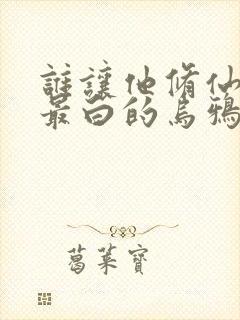 誰讓他脩仙
最白的烏鴉
葛菜寶